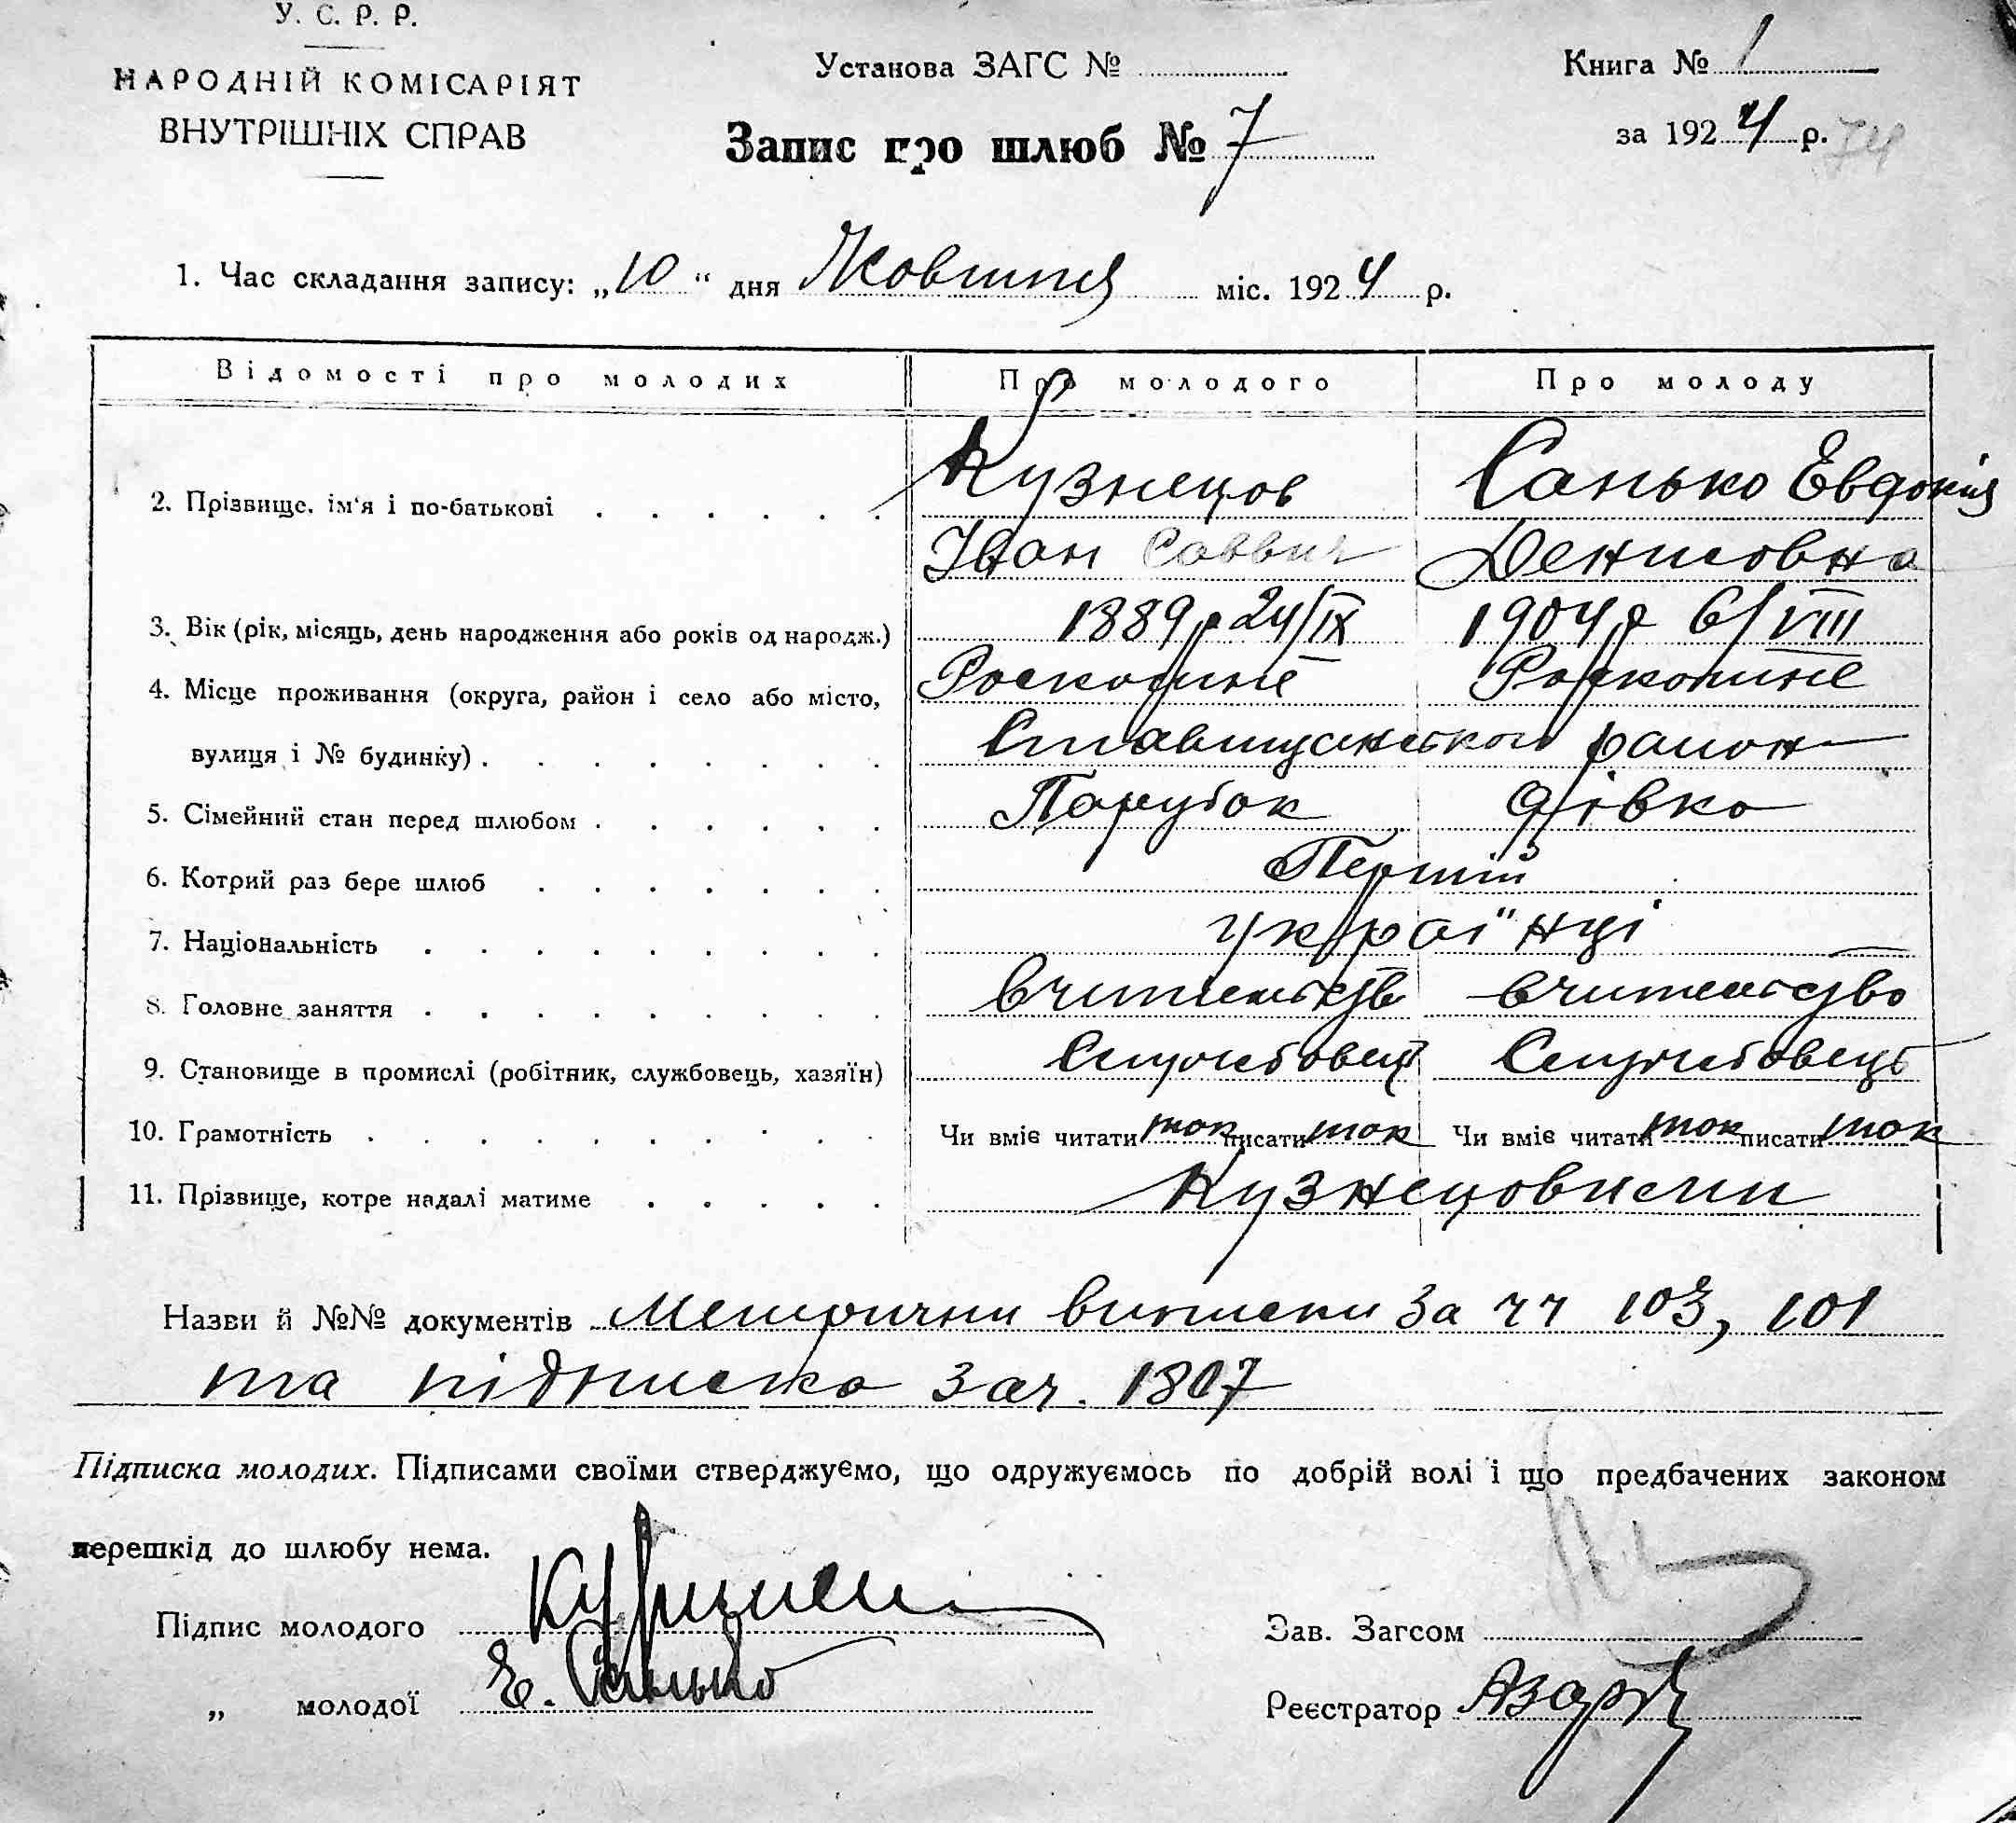 У. С. Р. Р.
НАРОДНІЙ КОМІСАРІЯТ
ВНУТРІШНІХ СПРАВ
Установа ЗАГС №
Запис про шлюб № 7
Книга № 1
за 1924 р. 74
1. Час складання запису: „10“ дня Жовтня міс. 1924 р.
Відомості про молодих Про молодого Про молоду
2. Прізвище, ім'я і по-батькові Кузнецов Санько Евдокія
Іван Саввич Денисовна
3. Вік (рік, місяць, день народження або років од народж.) 1889 р 24/IX 1904 р 6/VIII
4. Місце проживання (округа, район і село або місто, Роскопине Роскопине
вулиця і № будинку) Ставищанського район
5. Сімейний стан перед шлюбом Парубок дівка
6. Котрий раз бере шлюб Перший
7. Національність українці
8. Головне заняття вчительство вчительство
9. Становище в промислі (робітник, службовець, хазяїн) Службовець Службовець
10. Грамотність Чи вміє читати так писати так Чи вміє читати так писати так
11. Прізвище, котре надалі матиме Кузнецовими
Назви й №№ документів Метрични виписки за чч 103, 101
та підписка за ч. 1807
Підписка молодих. Підписами своїми стверджуємо, що одружуємось по добрій волі і що предбачених законом
перешкід до шлюбу нема.
Підпис молодого
„ молодої Е. Санько
Зав. Загсом
Реєстратор